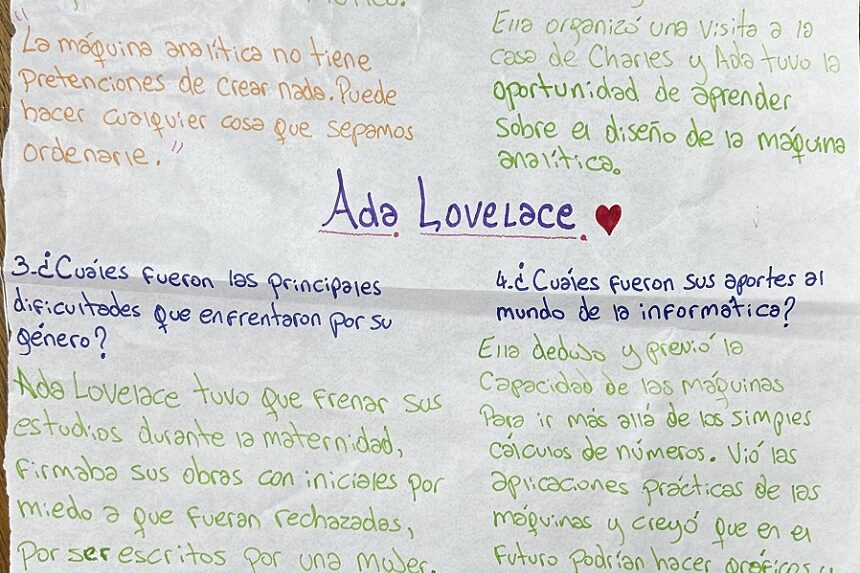 "La máquina analítica no tiene
pretenciones de crear nada. Puede
hacer cualquier cosa que sepamos
ordenarle."
Ella organizó una visita a la
casa de Charles y Ada tuvo la
oportunidad de aprender
sobre el diseño de la máquina
analítica.
Ada Lovelace
3-¿Cuáles fueron las principales
dificultades que enfrentaron por su
género?
Ada Lovelace tuvo que frenar sus
estudios durante la maternidad,
firmaba sus obras con iniciales por
miedo a que fueran rechazadas,
Por ser escritos por una mujer.
4-¿Cuáles fueron sus aportes al
mundo de la informática?
Ella dedujo y previó la
Capacidad de las máquinas
Para ir más allá de los simples
cálculos de números. Vió las
aplicaciones prácticas de las
máquinas y creyó que en el
Futuro Podrían hacer gráficos y